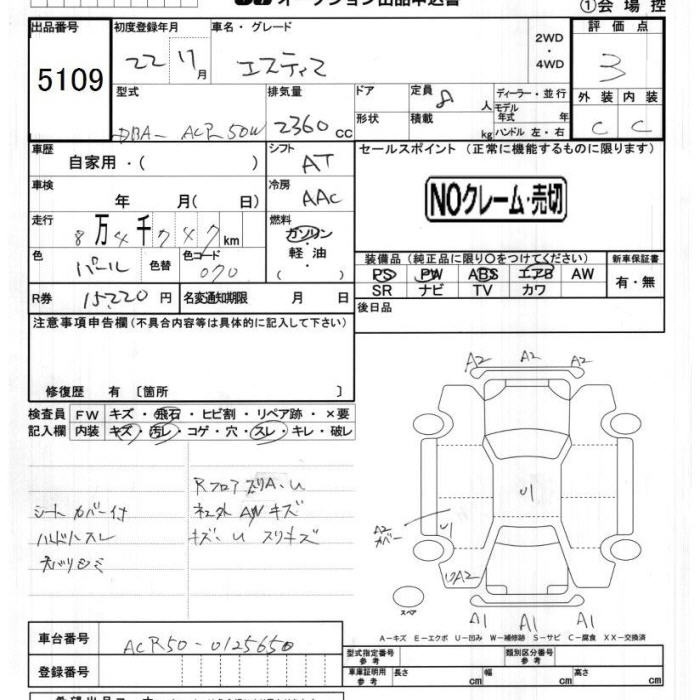 オークション出品申込書
①会場控
出品番号 初度登録年月 車名・グレード 評価点
5109 22 年 11月 エスティマ 2WD・4WD 3
型式 排気量 ドア 定員 8人 ディーラー・並行 外装 内装
DBA- ACR50W 2360cc 形状 積載 kg モデル年式 年 ハンドル 左・右 C C
車歴 シフト セールスポイント (正常に機能するものに限ります)
自家用・( ) AT
車検 冷房 NOクレーム・売切
年 月( 日) AAC
走行 燃料
8万4千747km ガソリン
色 色コード 軽油 装備品(純正品に限り○をつけてください) 新車保証書
パール 色替 070 ( ) PS PW ABS エアB AW 有・無
SR ナビ TV カワ
R券 15220円 名変通知期限 月 日 後日品
注意事項申告欄(不具合内容等は具体的に記入して下さい)
修復歴 有 〔箇所 〕
検査員 FW キズ・飛石・ヒビ割・リペア跡・×要
記入欄 内装 キズ・汚レ・コゲ・穴・スレ・キレ・破レ
シートカバー付
ハンドルスレ
R フロア
A2 A2 A2
U1
A2 カバー
U1
A2
スペア
A1 A1 A1
A-キズ E-エクボ U-凹み W-補修跡 S-サビ C-腐食 XX-交換済
車台番号 ACR50-0125650
型式指定番号 参考 類別区分番号 参考
登録番号 車庫証明用 参考 長さ cm 幅 cm 高さ cm